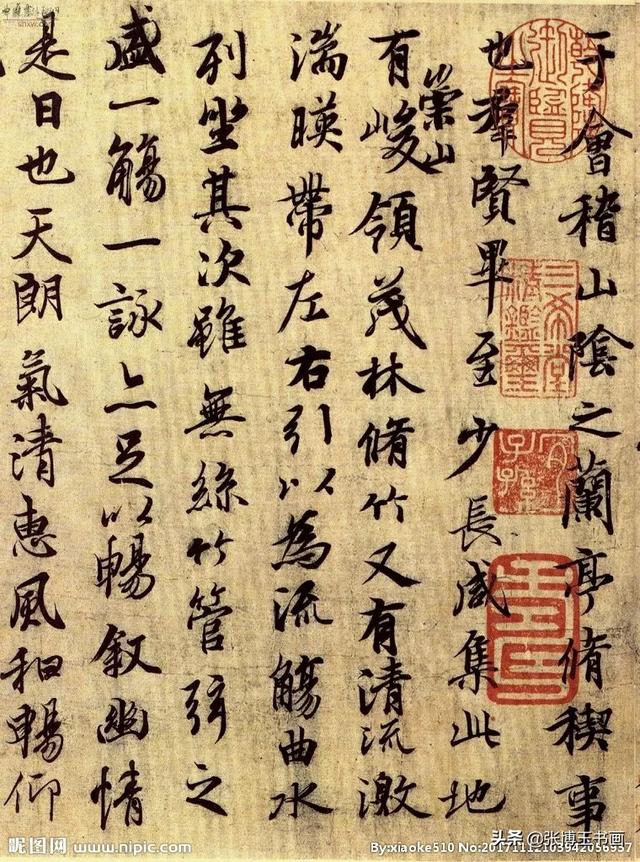 于會稽山陰之蘭亭脩禊事
也羣賢畢至少長咸集此地
有崇山峻領茂林脩竹又有清流激
湍暎帶左右引以為流觴曲水
列坐其次雖無絲竹管弦之
盛一觴一詠亦足以暢敘幽情
是日也天朗氣清惠風和暢仰
三希堂精鑑璽
宜子孫
昵图网 www.nipic.com
By:xiaoke510 No:20171112103942056937
头条 @张博玉书画